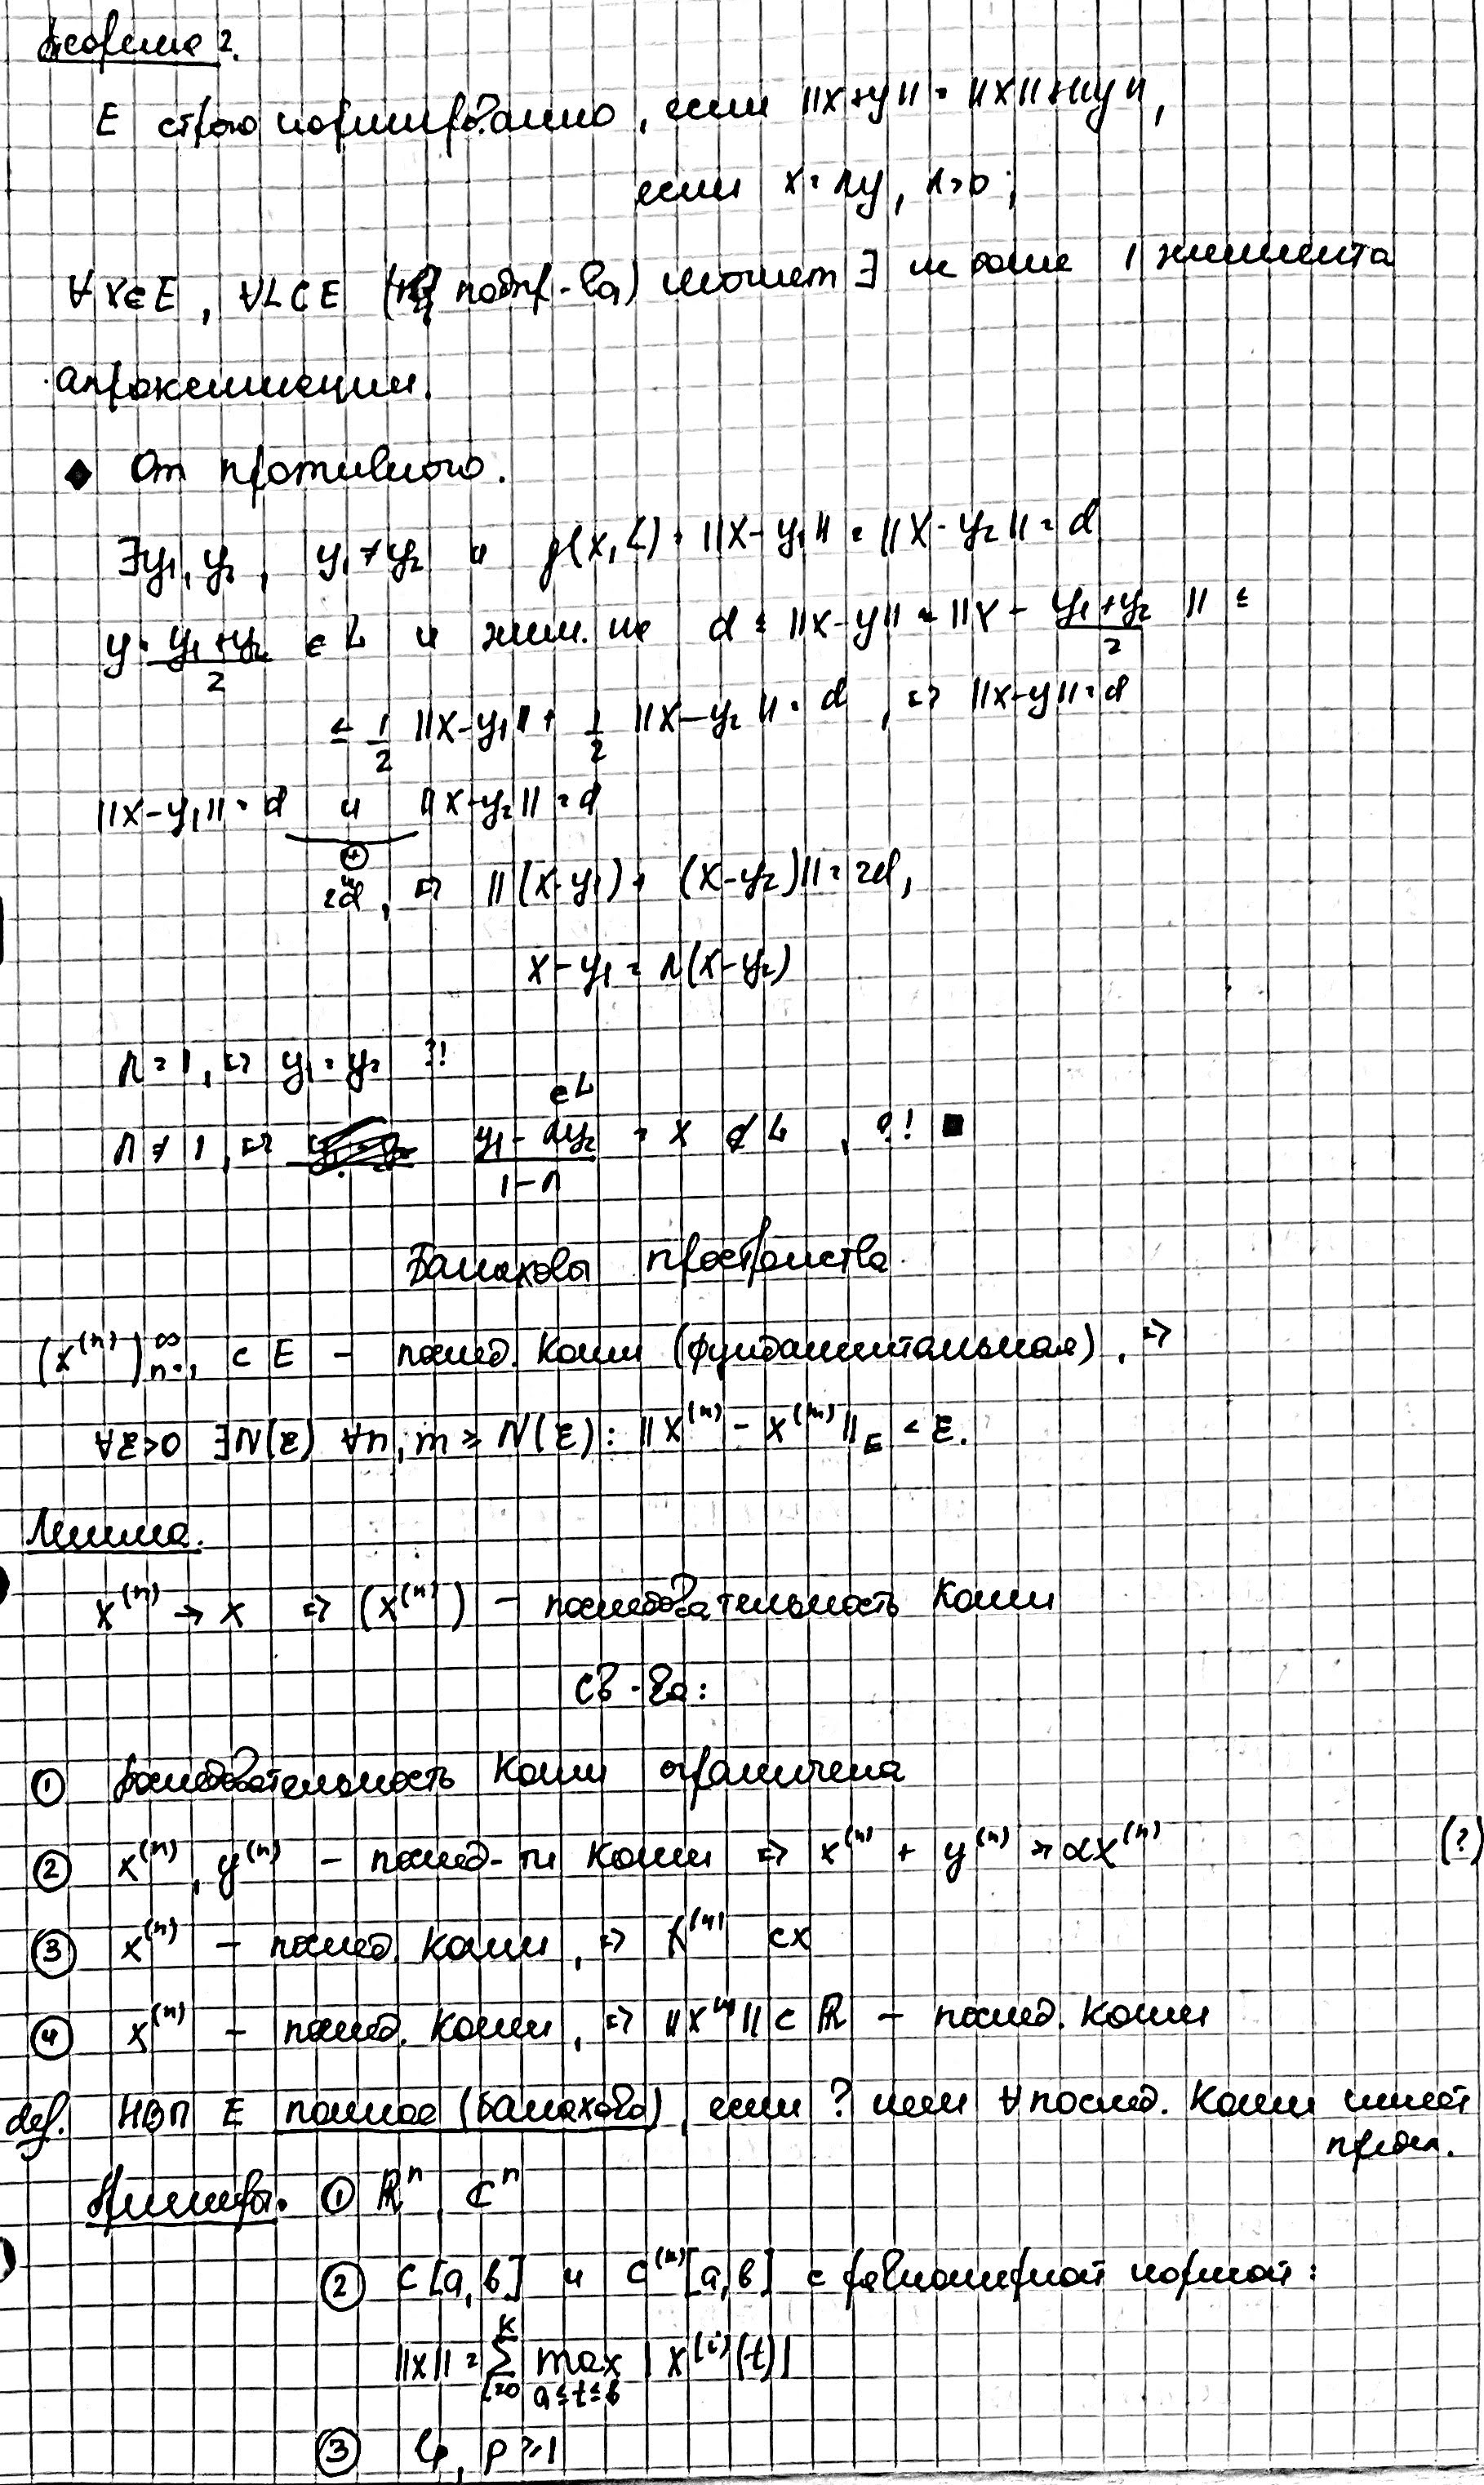 Теорема 2.
E строго нормировано, если ||x+y|| = ||x||+||y||,
если x = λy, λ>0;
∀x∈E, ∀L⊂E (подпр-ва) может ∃ не более 1 элемента
апроксимации.
◆ От противного.
∃y₁, y₂, y₁≠y₂ и ρ(x, L) = ||x-y₁|| = ||x-y₂|| = d
y = (y₁+y₂)/2 ∈ L и d ≤ ||x-y|| = ||x - (y₁+y₂)/2|| ≤
≤ 1/2 ||x-y₁|| + 1/2 ||x-y₂|| = d, ⇒ ||x-y|| = d
||x-y₁|| = d и ||x-y₂|| = d
⊕
2d, ⇒ ||(x-y₁) + (x-y₂)|| = 2d,
x-y₁ = λ(x-y₂)
λ = 1, ⇒ y₁ = y₂ ?!
∈L
λ ≠ 1, ⇒ (y₁ - λy₂)/(1-λ) = x ∉ L, ?! ■
Банаховы пространства
(x⁽ⁿ⁾)ₙ₌₁^∞ ⊂ E – послед. Коши (фундаментальная), ⇒
∀ε>0 ∃N(ε) ∀n, m ≥ N(ε): ||x⁽ⁿ⁾ - x⁽ᵐ⁾||_E < ε.
Лемма.
x⁽ⁿ⁾ → x ⇒ (x⁽ⁿ⁾) – последовательность Коши
Св-ва:
① Последовательность Коши ограничена
② x⁽ⁿ⁾, y⁽ⁿ⁾ – послед-ти Коши ⇒ x⁽ⁿ⁾ + y⁽ⁿ⁾ → αx⁽ⁿ⁾ (?)
③ x⁽ⁿ⁾ – послед. Коши, ⇒ λ⁽ⁿ⁾ сх
④ x⁽ⁿ⁾ – послед. Коши, ⇒ ||x⁽ⁿ⁾|| ⊂ ℝ – послед. Коши
def. НВП E полное (банахово), если ? нем ∀ послед. Коши имеет
предел.
Примеры. ① ℝⁿ, ℂⁿ
② C[a, b] и C⁽ᵏ⁾[a, b] с равномерной нормой:
||x|| = Σ_{i=0}^{k} max_{a≤t≤b} |x⁽ⁱ⁾(t)|
③ lₚ, p ≥ 1